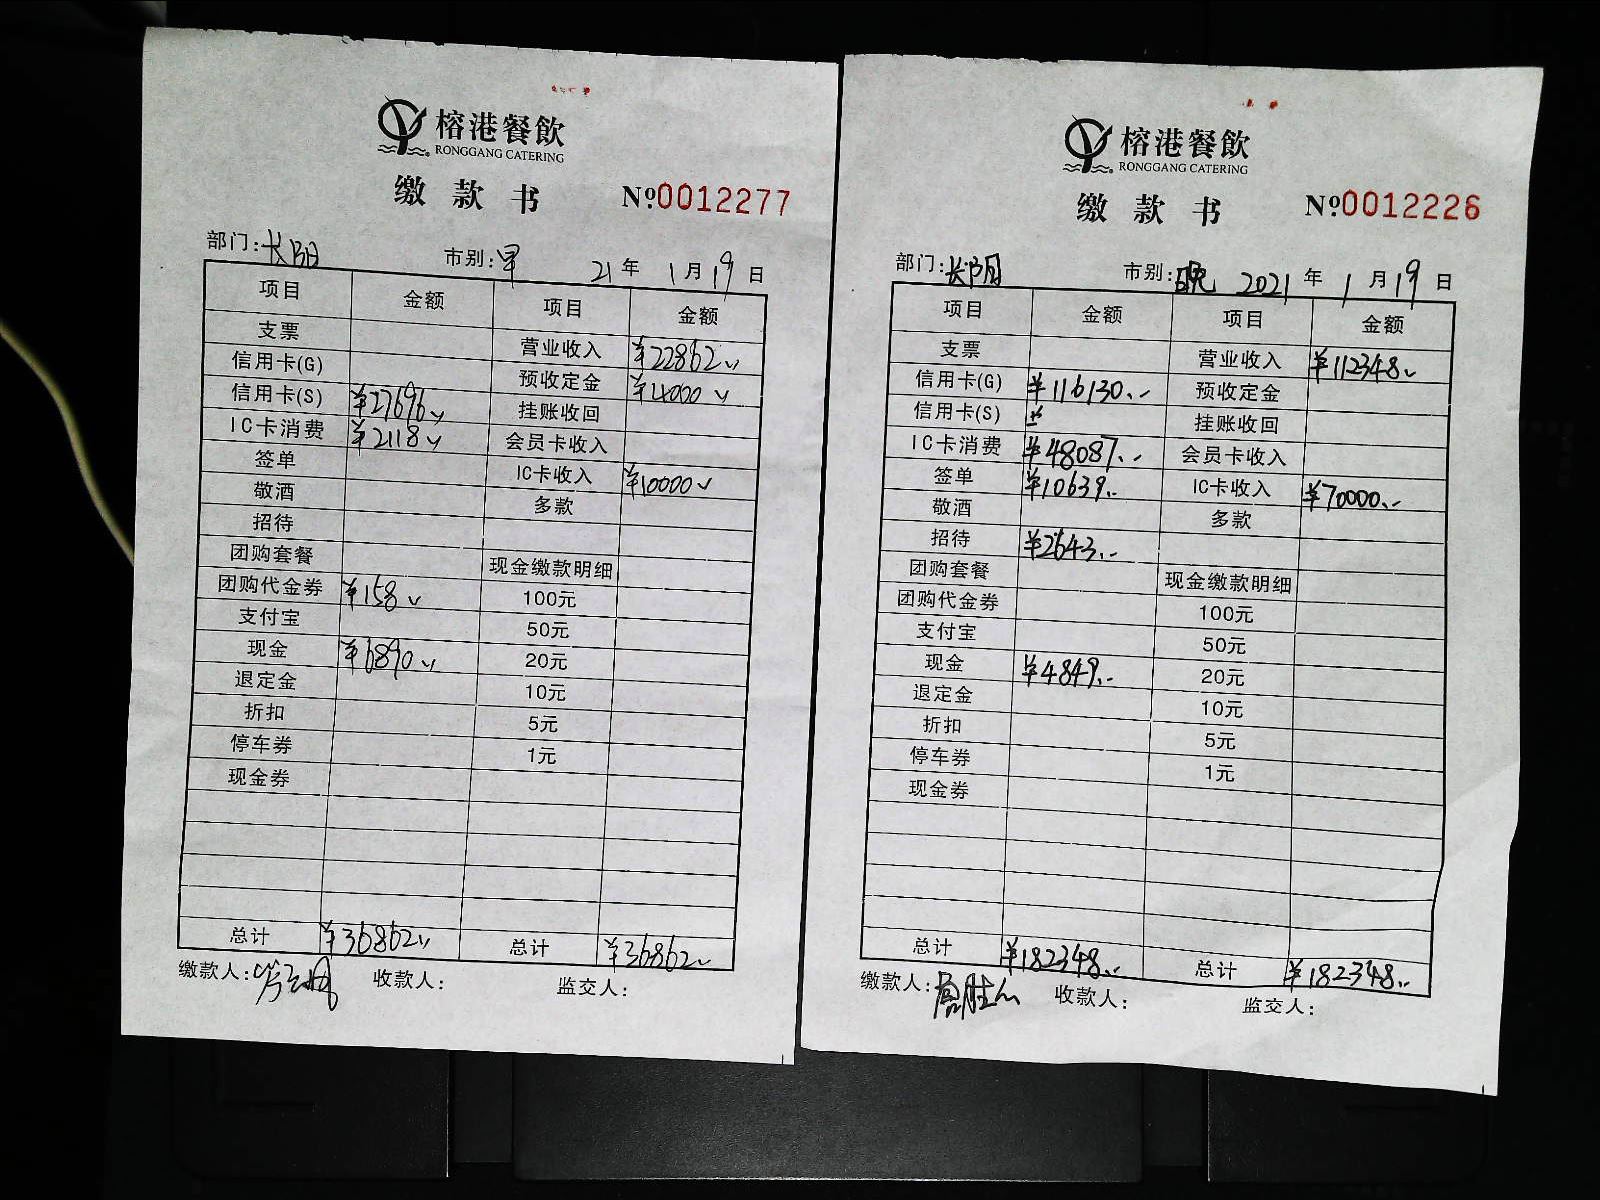 榕港餐飲
RONGGANG CATERING
缴款书 №0012277
部门:长阳 市别:早 21年1月19日
项目 金额 项目 金额
支票 营业收入 ¥22862
信用卡(G) 预收定金 ¥4000
信用卡(S) ¥27696 挂账收回
IC卡消费 ¥2118 会员卡收入
签单 IC卡收入 ¥10000
敬酒 多款
招待
团购套餐 现金缴款明细
团购代金券 ¥158 100元
支付宝 50元
现金 ¥6890 20元
退定金 10元
折扣 5元
停车券 1元
现金券
总计 ¥36862 总计 ¥36862
缴款人: 收款人: 监交人:
榕港餐飲
RONGGANG CATERING
缴款书 №0012226
部门:长阳 市别:晚 2021年1月19日
项目 金额 项目 金额
支票 营业收入 ¥112348
信用卡(G) ¥116130 预收定金
信用卡(S) 挂账收回
IC卡消费 ¥48087 会员卡收入
签单 ¥10639 IC卡收入 ¥70000
敬酒 多款
招待 ¥2643
团购套餐 现金缴款明细
团购代金券 100元
支付宝 50元
现金 ¥4849 20元
退定金 10元
折扣 5元
停车券 1元
现金券
总计 ¥182348 总计 ¥182348
缴款人: 收款人: 监交人: